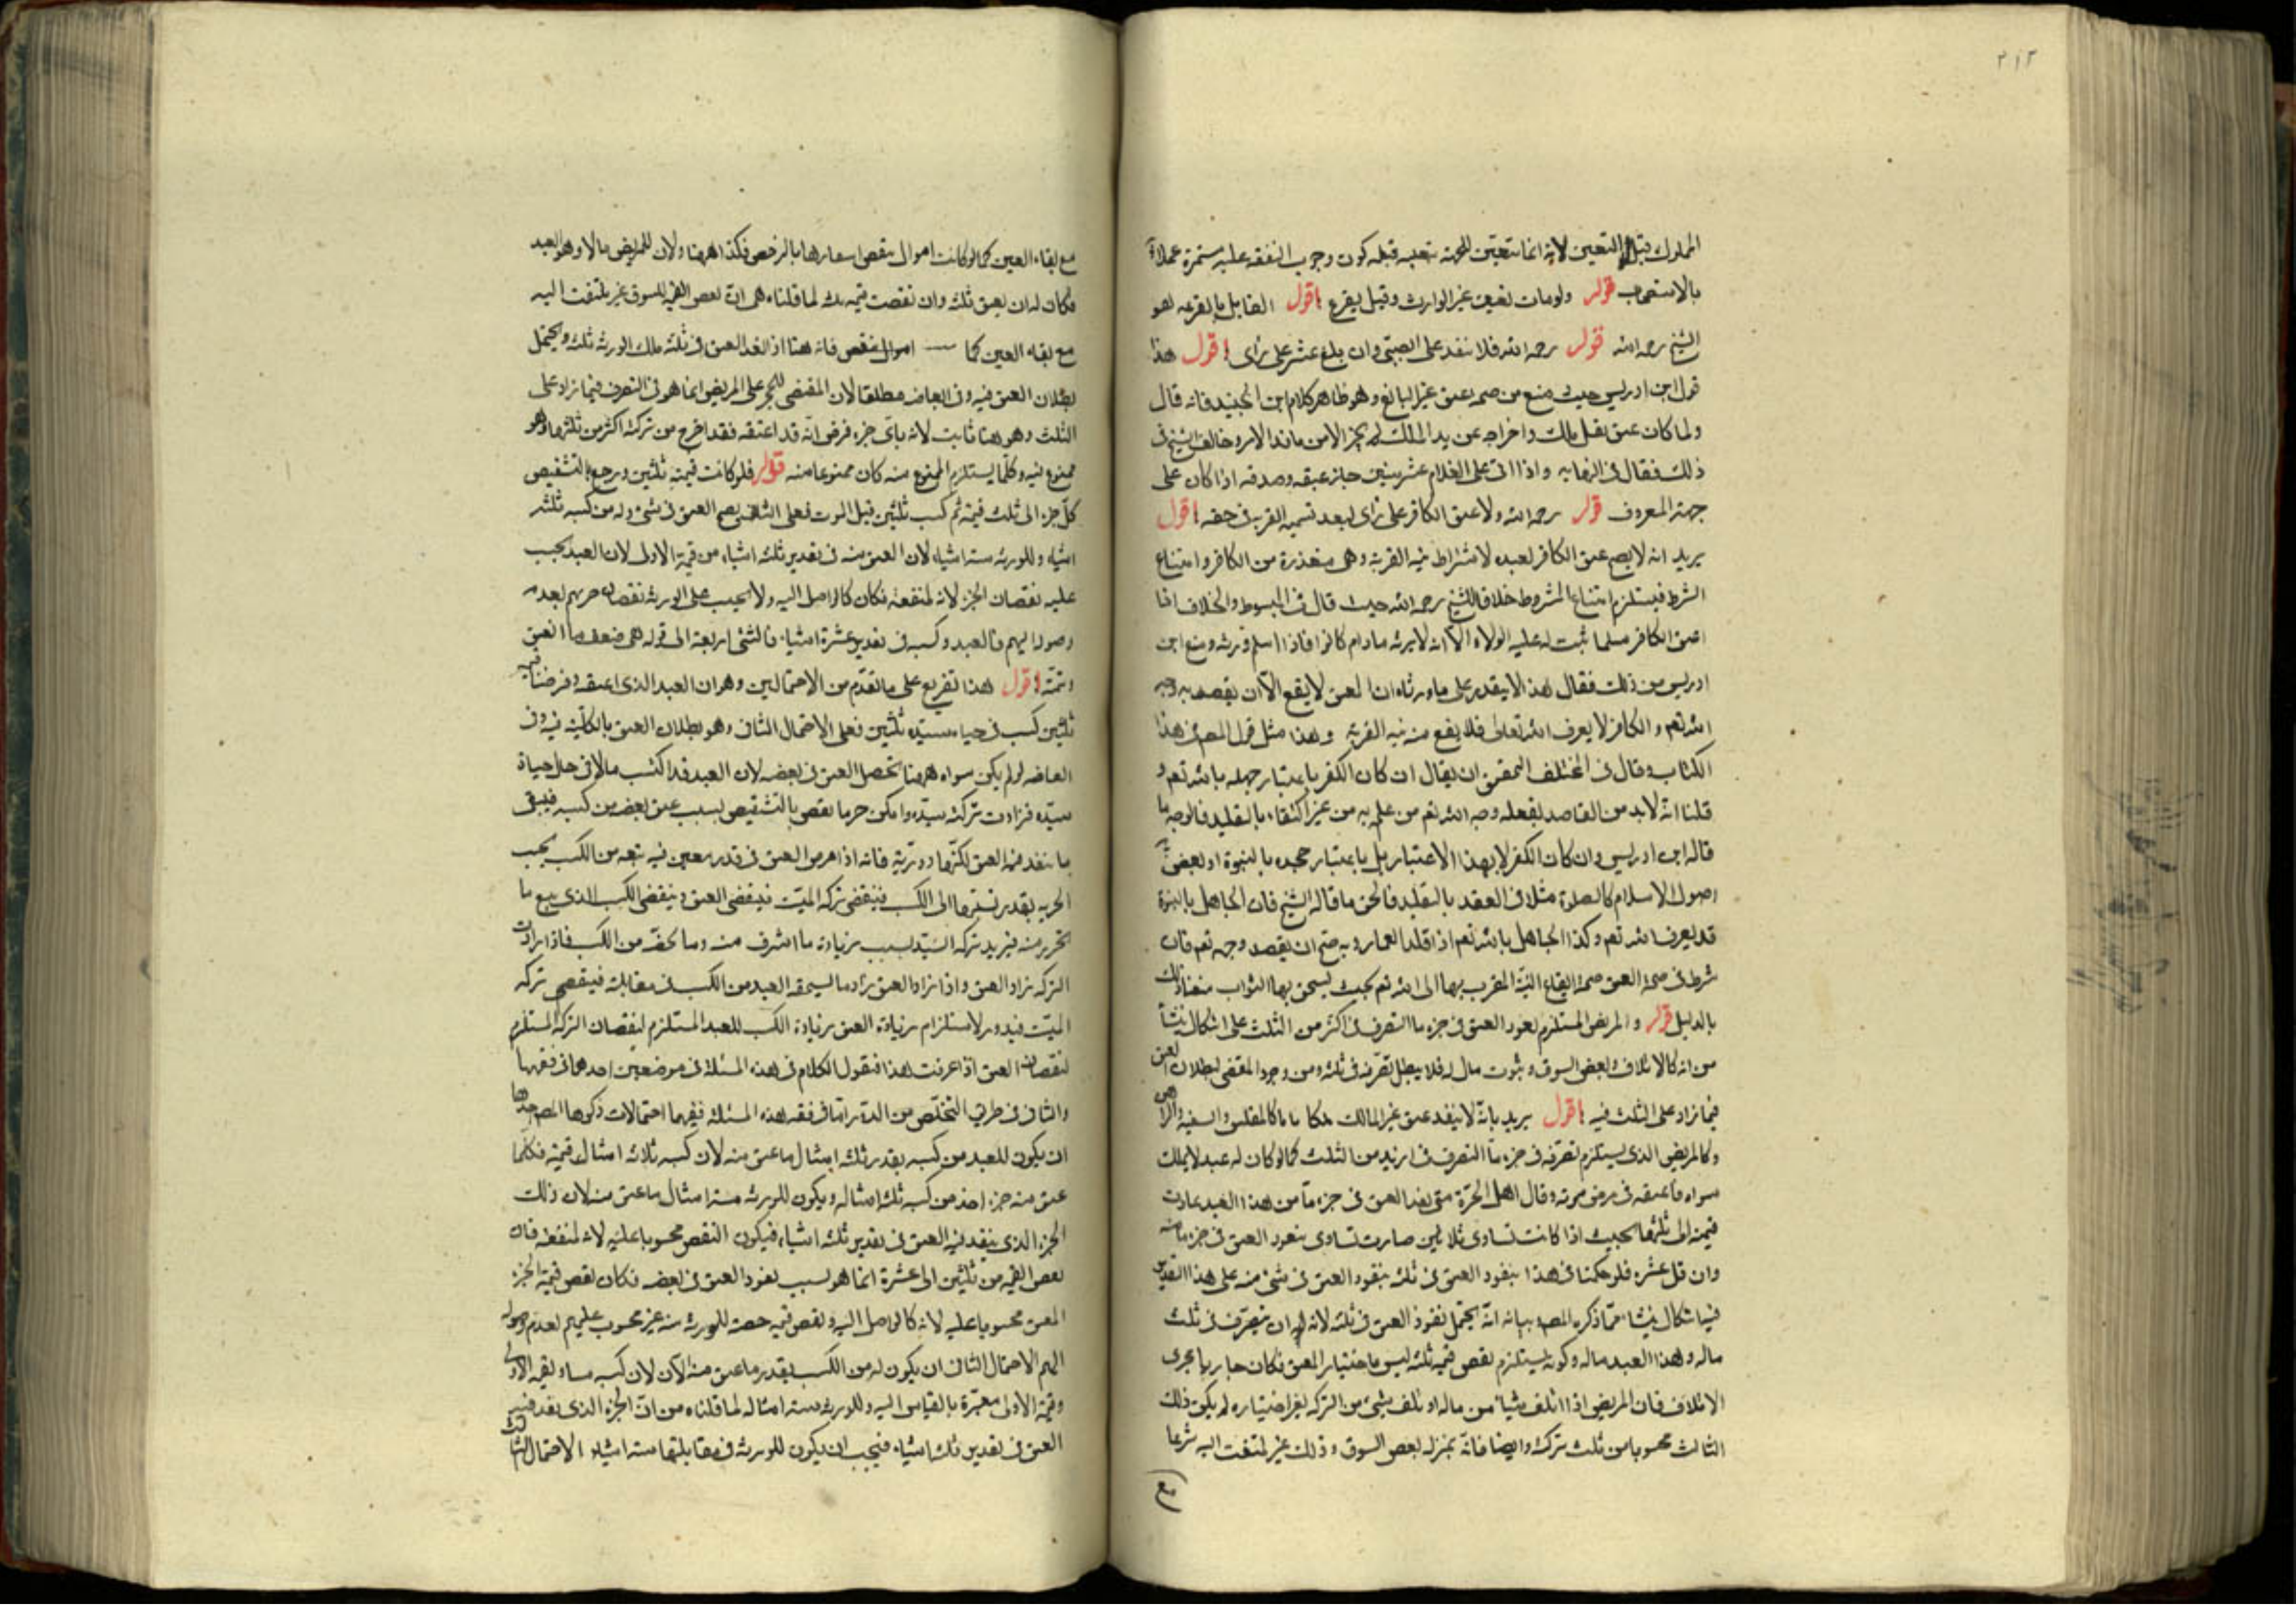 ٢١٢
المملوك قبل التعيين لانه انما يتعين للحرية بتعيينه قبله كون وجوب النفقة عليه مستمرة عملا
بالاستصحاب قوله ولو مات لم يعين غير الوارث وقيل يقرع اقول القايل بالقرعة هو
الشيخ رحمه الله قوله رحمه الله فلا ينفذ عتق الصبي وان بلغ عشرا على راى اقول هذا
قول ابن ادريس حيث منع من صحة عتق غير البالغ وهو ظاهر كلام ابن الجنيد فانه قال
ولما كان عتق نقل ملك واخراجه عن يد المالك لم يجز الا من مانذ الامر وخالف الشيخ فى
ذلك فقال فى النهاية واذا اتى على الغلام عشر سنين جاز عتقه وصدقته اذا كان على
جهة المعروف قوله رحمه الله ولا عتق الكافر على راى لبعد نسبه القربة فى حقه اقول
يريد انه لا يصح عتق الكافر لعبده لاشتراط نية القربة وهى متعذرة من الكافر وامتناع
الشرط فيستلزم امتناع المشروط خلافا للشيخ رحمه الله حيث قال فى المبسوط والخلاف اذا
اعتق الكافر مسلما ثبت له عليه الولاء الا انه لا يرثه مادام كافرا فاذا اسلم ورثه ومنع ابن
ادريس من ذلك فقال هذا لا يتقدر على ما ورثناه ان العتق لا يقع الا ان يقصد به وجه
الله تعم والكافر لا يعرف الله تعالى فلا يقع منه نية القربة وهذا مثل قول المصـ فى هذا
الكتاب وقال فى المختلف التحقيق ان يقال ان كان الكفر باعتبار جهله بالله تعم و
قلنا انه لا بد من القاصد لفعله وجه الله تعم من علم به من غير اكتفاء بالتقليد فالوجه ما
قاله ابن ادريس وان كان الكفر لا بهذا الاعتبار بل باعتبار جحده بالنبوة او بعض
اصول الاسلام كالصلوة مثلا فى العقد بالتقليد فالحق ما قاله الشيخ فان الجاهل بالنبوة
قد يعرف الله تعم وكذا الجاهل بالله تعم اذا قلد العارف به صح ان يقصد وجه تعم فان
شرط فى صحة العتق صحة ايقاع النية المقرب بها الى الله تعم بحيث يستحق بها الثواب منعنا ذلك
بالدليل قوله والمريض المستلزم لعود العتق فى جزء ما التصرف فى اكثر من الثلث على اشكال ينشأ
من انه كالاتلاف ولبعض السوق وثبوت مال له فلا يبطل تصرفه فى ثلثه ومن وجود المقتضى لبطلان العتق
فيما زاد على الثلث فيه اقول يريد بانه لا ينفذ عتق غير المالك ملكا تاما كالمفلس والسفيه والراهن
وكالمريض الذى يستلزم تصرفه فى جزء ما التصرف فى ازيد من الثلث كما لو كان له عبد لا يملك
سواه فاعتقه فى مرض موته وقال اهل الخبرة متى نفذ العتق فى جزء ما من هذا العبد عادت
قيمته الى ثلثها بحيث اذا كانت تساوى ثلاثين صارت تساوى بنفوذ العتق فى جزء ما منه
وان قل عشرة فلو حكمنا فى هذا بنفوذ العتق فى ثلثه بنفوذ العتق فى شئ منه على هذا التقدير
فيه اشكال ينشاء مما ذكره المصـ وبيانه انه يحتمل نفوذ العتق فى ثلثه لانه له ان يتصرف فى ثلث
ماله وهذا العبد ماله وكونه يستلزم نقص قيمة ثلثه ليس باختيار المعتق فكان جاريا مجرى
الاتلاف فان المريض اذا اتلف شيئا من ماله او تلف شئ من التركة بغير اختياره لم يكن ذلك
الثالث محسوبا من ثلث تركته وايضا فانه بمنزلة نقص السوق وذلك غير ملتفت اليه شرعا
مع
مع بقاء العين كما لو كانت اموال ينقص اسعارها بالرخص فكذا ههنا ولان للمريض مالا وهو العبد
فكان له ان يعتق ثلثه وان نقصت قيمة ثلثه لما قلناه هى ان نقص القيمة للسوق غير ملتفت اليه
مع بقاء العين كما اموال تنقص فانه هنا اذا نفذ العتق فى ثلثه ملك الورثة ثلثه ويحتمل
بطلان العتق فيه وفى العاضد مطلقا لان المقتضى للحجر على المريض انما هو فى التصرف فيما زاد على
الثلث وهو ههنا ثابت لانه باى جزء فرض انه قد اعتقه فقد اخرج من تركته اكثر من ثلثها وهو
ممنوع فيه وكلما يستلزم الممنوع منه كان ممنوعا منه قوله فلو كانت قيمته ثلثين ورجع بالتشقيص
كل جزء الى ثلث قيمته ثم كسب ثلثين قبل الموت فعلى الثانى يصح العتق فى شئ وله من كسبه ثلثة
اشياء وللورثة ستة اشياء لان العتق منه فى تقدير ثلثة اشياء من قيمة الاولى لان العبد يحسب
عليه نقصان الجزء لانه لمنفعته فكان كالواصل اليه ولا يحسب على الورثة نقصان حريتهم لعدم
وصوله اليهم فالعبد وكسبه فى تقدير عشرة اشياء فالشئ اربعة الى قوله هى ضعف ما انعتق
وتمته اقول هذا تفريع على ما تقدم من الاحتمالين وهو ان العبد الذى اعتقه وفرضنا قيمته
ثلثين كسب فى حياة سيده ثلثين فعلى الاحتمال الثانى وهو بطلان العتق بالكلية فيه وفى
العاضد لو لم يكن سواه ههنا يحصل العتق فى بعضه لان العبد قد اكتسب مالا فى حال حياة
سيده فزادت تركة سيده وامكن جبر ما نقص بالتشقيص بسبب عتق بعضه من كسبه فيبقى
ما ينفذ فيه العتق لكنها دورية فانه اذا فرض العتق فى قدر معين فيه تبعه من الكسب بحسب
الحرية بقدر نسبتها الى الكسب فينقص تركة الميت فينقص العتق وينقص الكسب الذى يتبع ما
تحرر منه فيزيد تركة السيد بسبب زيادة ما استرق منه وما لحقه من الكسب فاذا زادت
التركة زاد العتق واذا زاد العتق زاد ما يستحقه العبد من الكسب فى مقابلته فينقص تركة
الميت فيدور لاستلزام زيادة العتق زيادة الكسب للعبد المستلزم لنقصان التركة المستلزم
لنقصان العتق اذا عرفت هذا فنقول الكلام فى هذه المسئلة فى موضعين احدهما فى فقهها
والثانى فى طريق التخلص من الدور اما فى فقه هذه المسئلة ففيها احتمالات ذكرها المصـ احدها
ان يكون للعبد من كسبه بقدر ثلثة امثال ما عتق منه لان كسبه ثلاثة امثال قيمته فكلما
عتق منه جزء اخذ من كسبه ثلثة امثاله ويكون للورثة ستة امثال ما عتق منه لان ذلك
الجزء الذى ينفذ فيه العتق فى تقدير ثلثة اشياء فيكون النقص محسوبا عليه لانه لمنفعته فان
نقص القيمة من ثلثين الى عشرة انما هو بسبب نفوذ العتق فى بعضه فكان نقص قيمة الجزء
المعتق محسوبا عليه لانه كالواصل اليه ونقص قيمة حصة للورثة منه غير محسوب عليهم لعدم وصوله
اليهم الاحتمال الثانى ان يكون له من الكسب بقدر ما عتق منه الان لان كسبه مساو لقيمة الاولى
وقيمة الاولى معتبرة بالقياس اليه وللورثة ستة امثاله لما قلناه من ان الجزء الذى نفذ فيه
العتق فى تقدير ثلثة اشياء فيجب ان يكون للورثة فى مقابلتها ستة اشياء الاحتمال الثالث